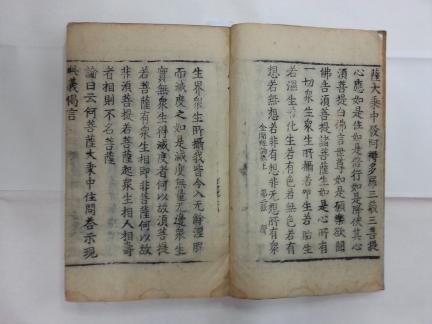 薩大乘中發阿耨多羅三藐三菩提
心應如是住如是修行如是降伏其心
須菩提白佛言世尊如是願樂欲聞
佛告須菩提諸菩薩生如是心所有
一切眾生眾生所攝若卵生若胎生
若濕生若化生若有色若無色若有
想若無想若非有想非無想所有眾
生界眾生所攝我皆令入无餘涅槃
而滅度之如是滅度無量无邊眾生
實無眾生得滅度者何以故須菩提
若菩薩有眾生相即非菩薩何以故
非須菩提若菩薩起眾生相人相壽
者相則不名菩薩
論曰云何菩薩大乘中住問答示現
此義偈言